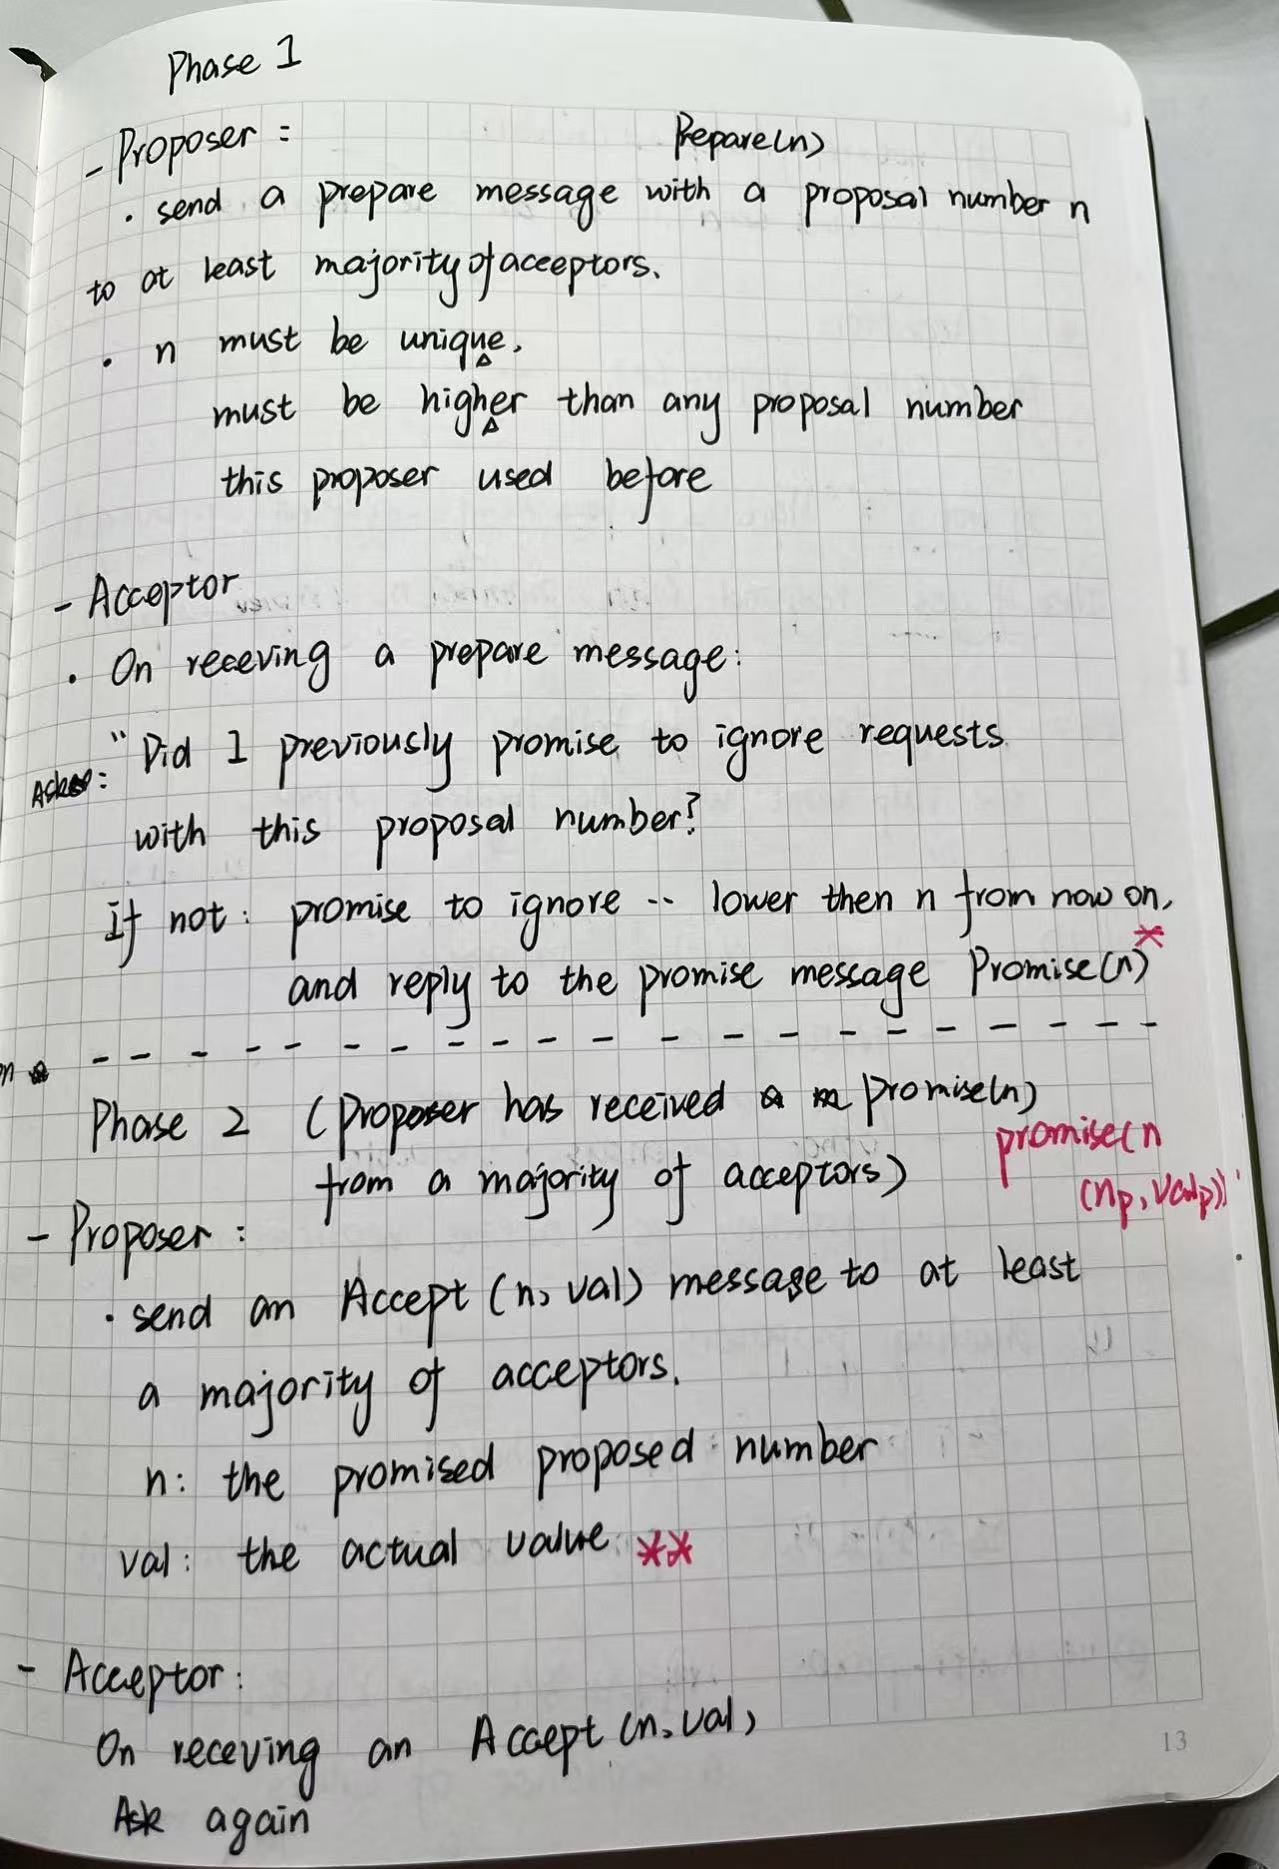 Phase 1
- Proposer :
Prepare(n)
· send a prepare message with a proposal number n
to at least majority of acceptors.
· n must be unique.
must be higher than any proposal number
this proposer used before
- Acceptor
· On receving a prepare message:
"Did I previously promise to ignore requests
Ask:
with this proposal number?
If not: promise to ignore -- lower then n from now on,
*
and reply to the promise message Promise(n)
n
Phase 2 (Proposer has received Promise(n)
from a majority of acceptors)
promise(n
(np, valp))
- Proposer :
· send an Accept (n, val) message to at least
a majority of acceptors.
n: the promised proposed number
val: the actual value **
- Acceptor:
On receving an Accept (n, val)
Ask again
13